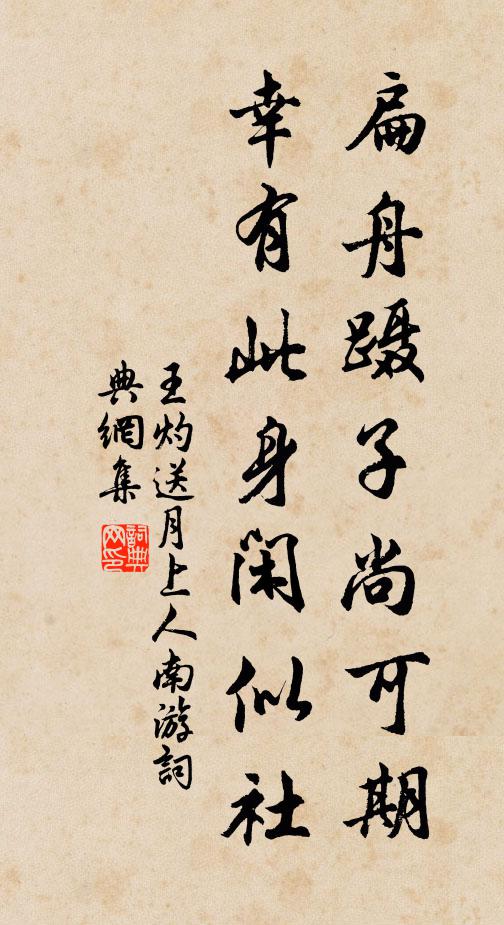 扁舟蹑子尚可期
幸有此身闲似社
王灼送月上人南游詞
典網集
詞典
网印